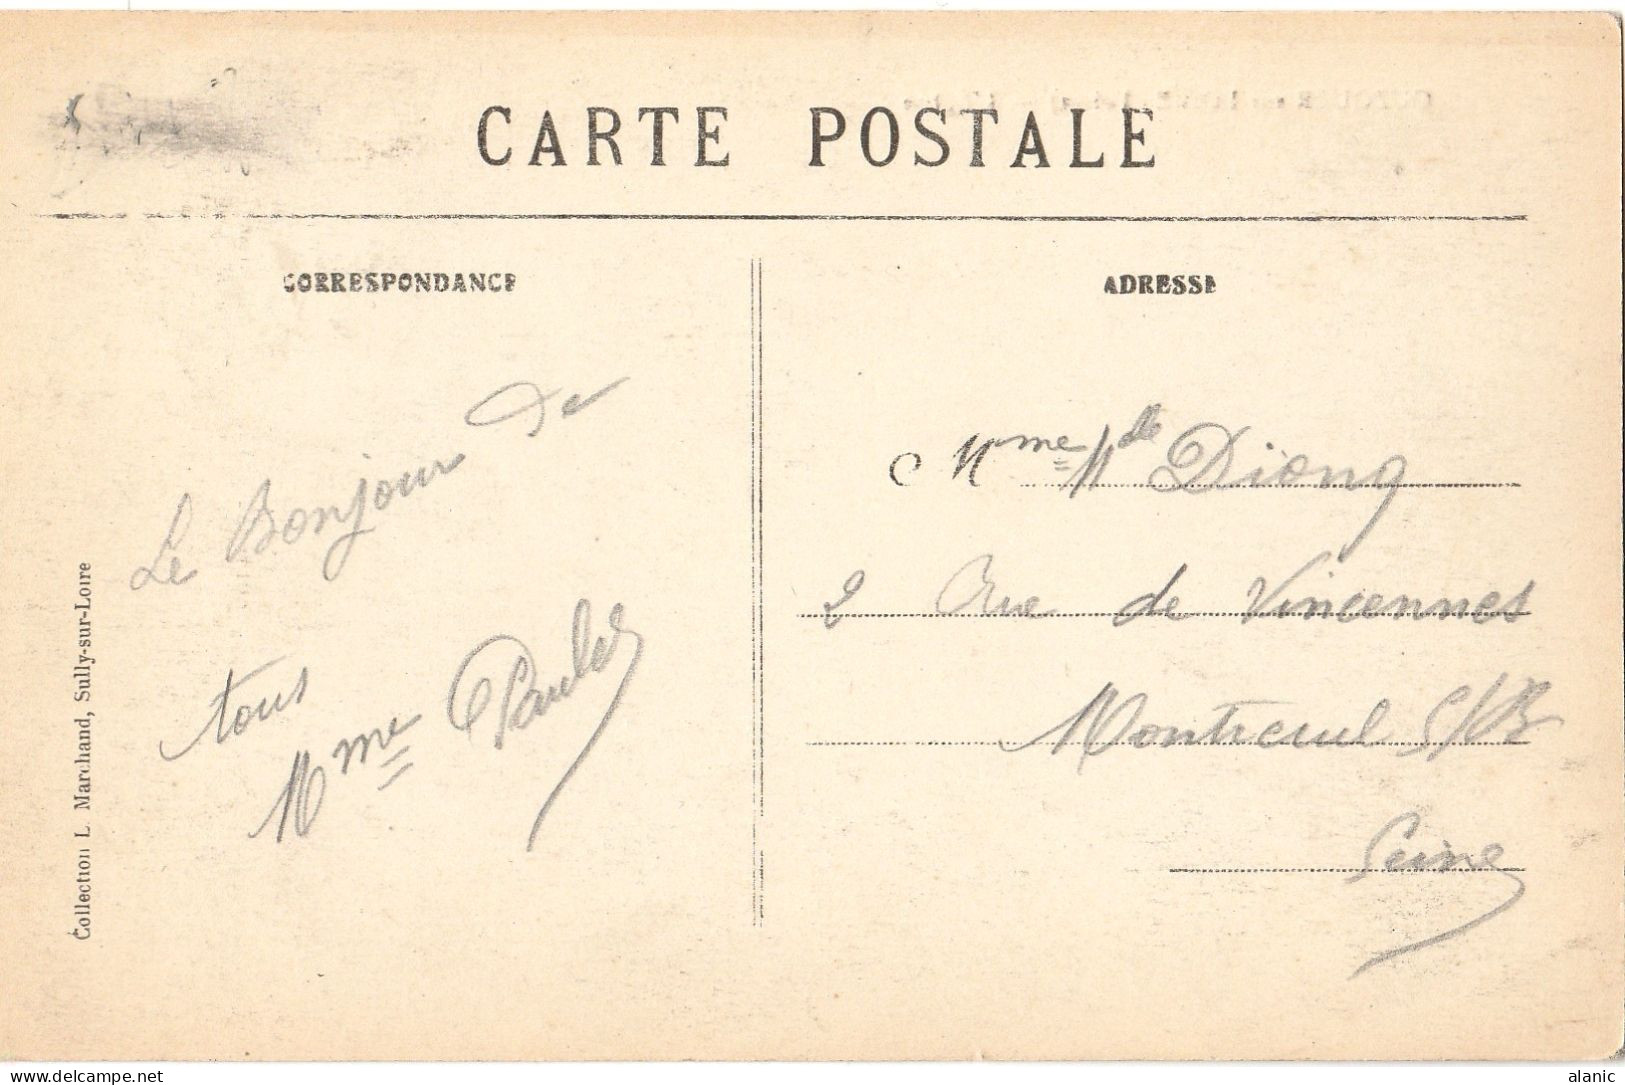 CARTE POSTALE
CORRESPONDANCE
Le Bonjour de
tous
Mme
Collection L. Marchand, Sully-sur-Loire
ADRESSE
Mme Diong
2 Rue de Vincennes
Montreuil S/B
Seine
www.delcampe.net
alanic